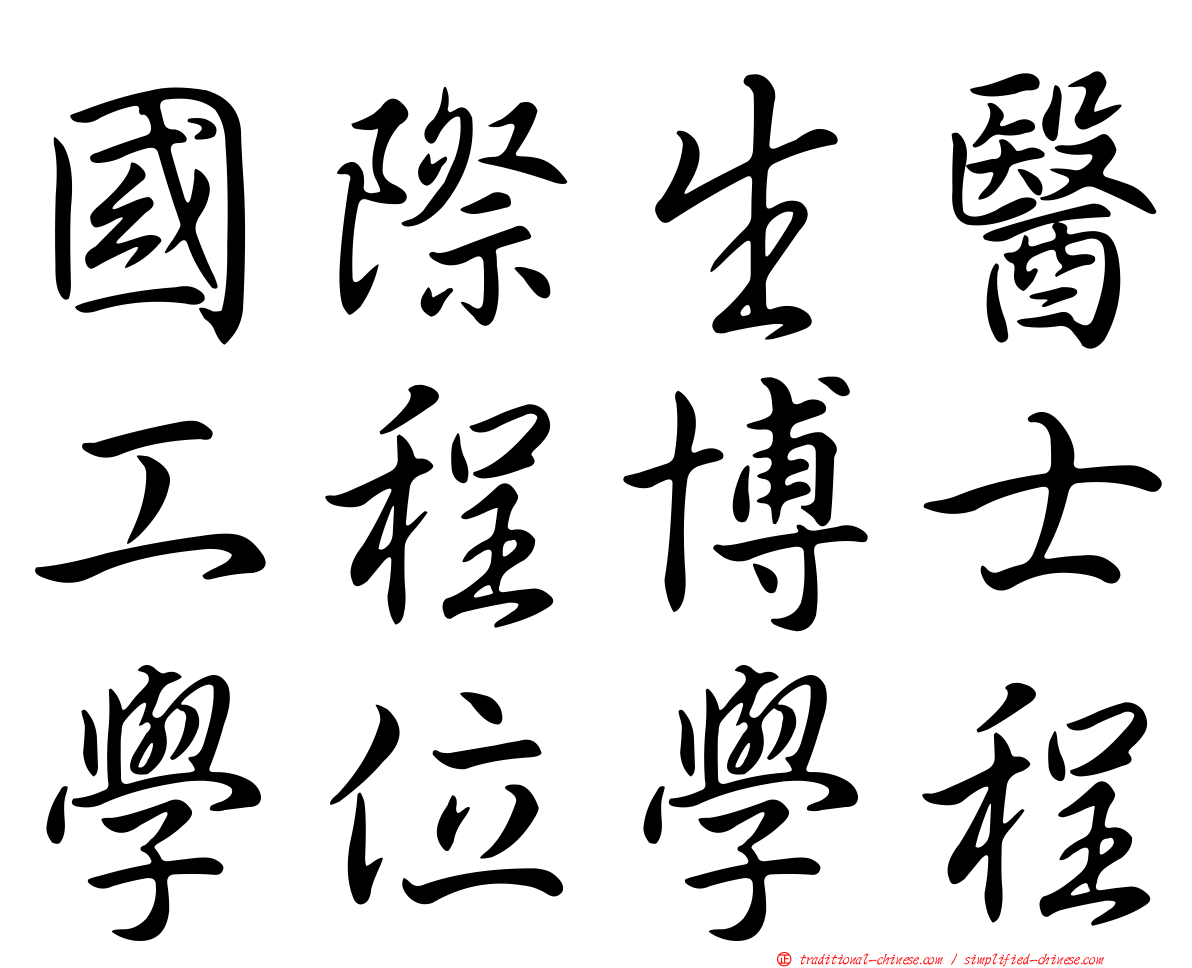 國際生醫
工程博士
學位學程
正 traditional-chinese.com / simplified-chinese.com